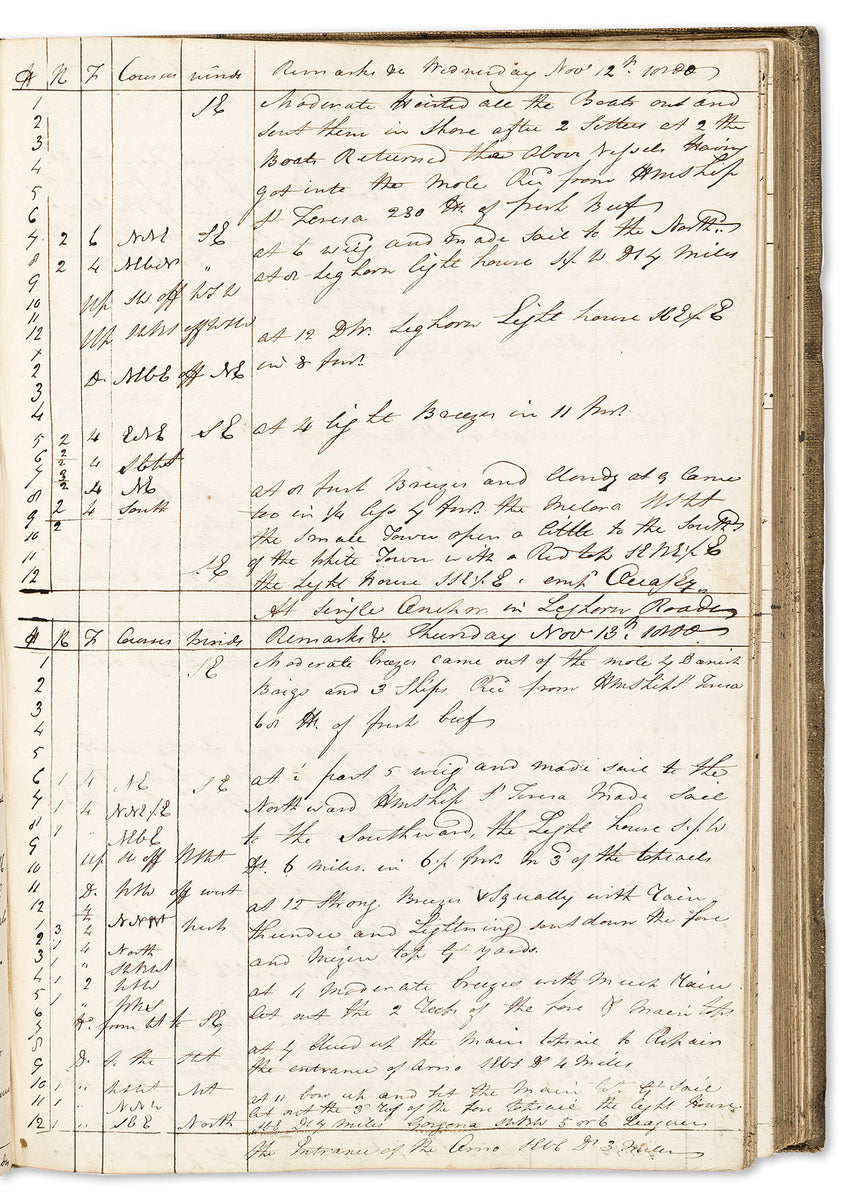 H K F Courses Winds Remarks &c Wednesday Novr 12th 1800
1 SE Moderate Hoisted all the Boats out and
2 sent them in Shore after 2 Setters at 2 the
3 Boats Returned the above Vessels Having
4 got into the Mole Recd from HMShip
5
6 St Teresa 230 of fresh Beef
7 2 6 NNE SE at 6 weigd and made sail to the Northd
8 2 4 NEbN " at 8 Leghorn light house Dt 4 Miles
9
10 Up SW off WSW
11
12 Up off WSW at 12 Do Leghorn Light house
1
2 D. NEbE off NE in 8 fms
3
4 at 4 light Breezes in 11 fms
5 2 4 ENE SE
6 2 4
7 2 4 NE
8 2 4 South at 8 fresh Breezes and Cloudy at 9 Came
9 2 too in 1/4 less 7 fms the Melora
10 the Small Tower open a little to the Southd
11 of the White Tower with a Red top
12 SE the Light House SSE1/2E
At Single Anchor in Leghorn Roads
H K F Courses Winds Remarks &c Thursday Novr 13th 1800
1 SE Moderate breezes came out of the mole 4 Danish
2 Brigs and 3 Ships Recd from HMShip St Teresa
3 68 of fresh beef
4
5
6 1 4 NE SE at 1/2 past 5 weigd and made sail to the
7 1 4 NNE1/2E Northward HMShip St Teresa Made Sail
8 1 " NEbE to the Southward, the Light house
9
10 Up SW off Dt 6 miles. in 6 1/2 fms In 3d of the topsails
11 D. WSW off West
12 at 12 Strong Breezes & Squally with Rain
1 3 4 thunder and Lightning sent down the fore
2 1 4 North and Mizen top Gt yards.
3 1 "
4 1 2 WSW at 4 moderate breezes with Much Rain
5 1 " let out the 2 Reefs of the fore & Main tops
6 Hd from to SE
7
8 at 7 Clued up the Main topsail to Repair
9 D. to the the entrance of Arno Dt 4 Miles
10 1 " at 11 bore up and set the Main top Gt Sail
11 1 " NNW let out the 3d Reef of the fore topsail the light House
12 1 " SEbE North Dt 7 Miles Gorgona 5 or 6 Leagues
the Entrance of the Arno Dt 3 Miles